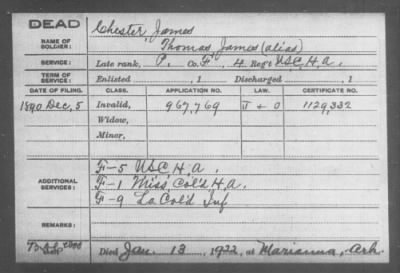 DEAD
Chester, James
NAME OF SOLDIER:
Thomas, James (alias)
SERVICE: Late rank, P. Co. F, 4 Reg't USC, H, A,
TERM OF SERVICE: Enlisted , 1 Discharged , 1
DATE OF FILING. CLASS. APPLICATION NO. LAW. CERTIFICATE NO.
1890 Dec, 5 Invalid, 967,769 J + O 1129,332
Widow,
Minor,
F-5 USC, H, A,
ADDITIONAL SERVICES: F-1 Miss, Col'd H, A,
F-9 La Col'd Inf
REMARKS:
Died Jan. 13, 1922, at Marianna, Ark.